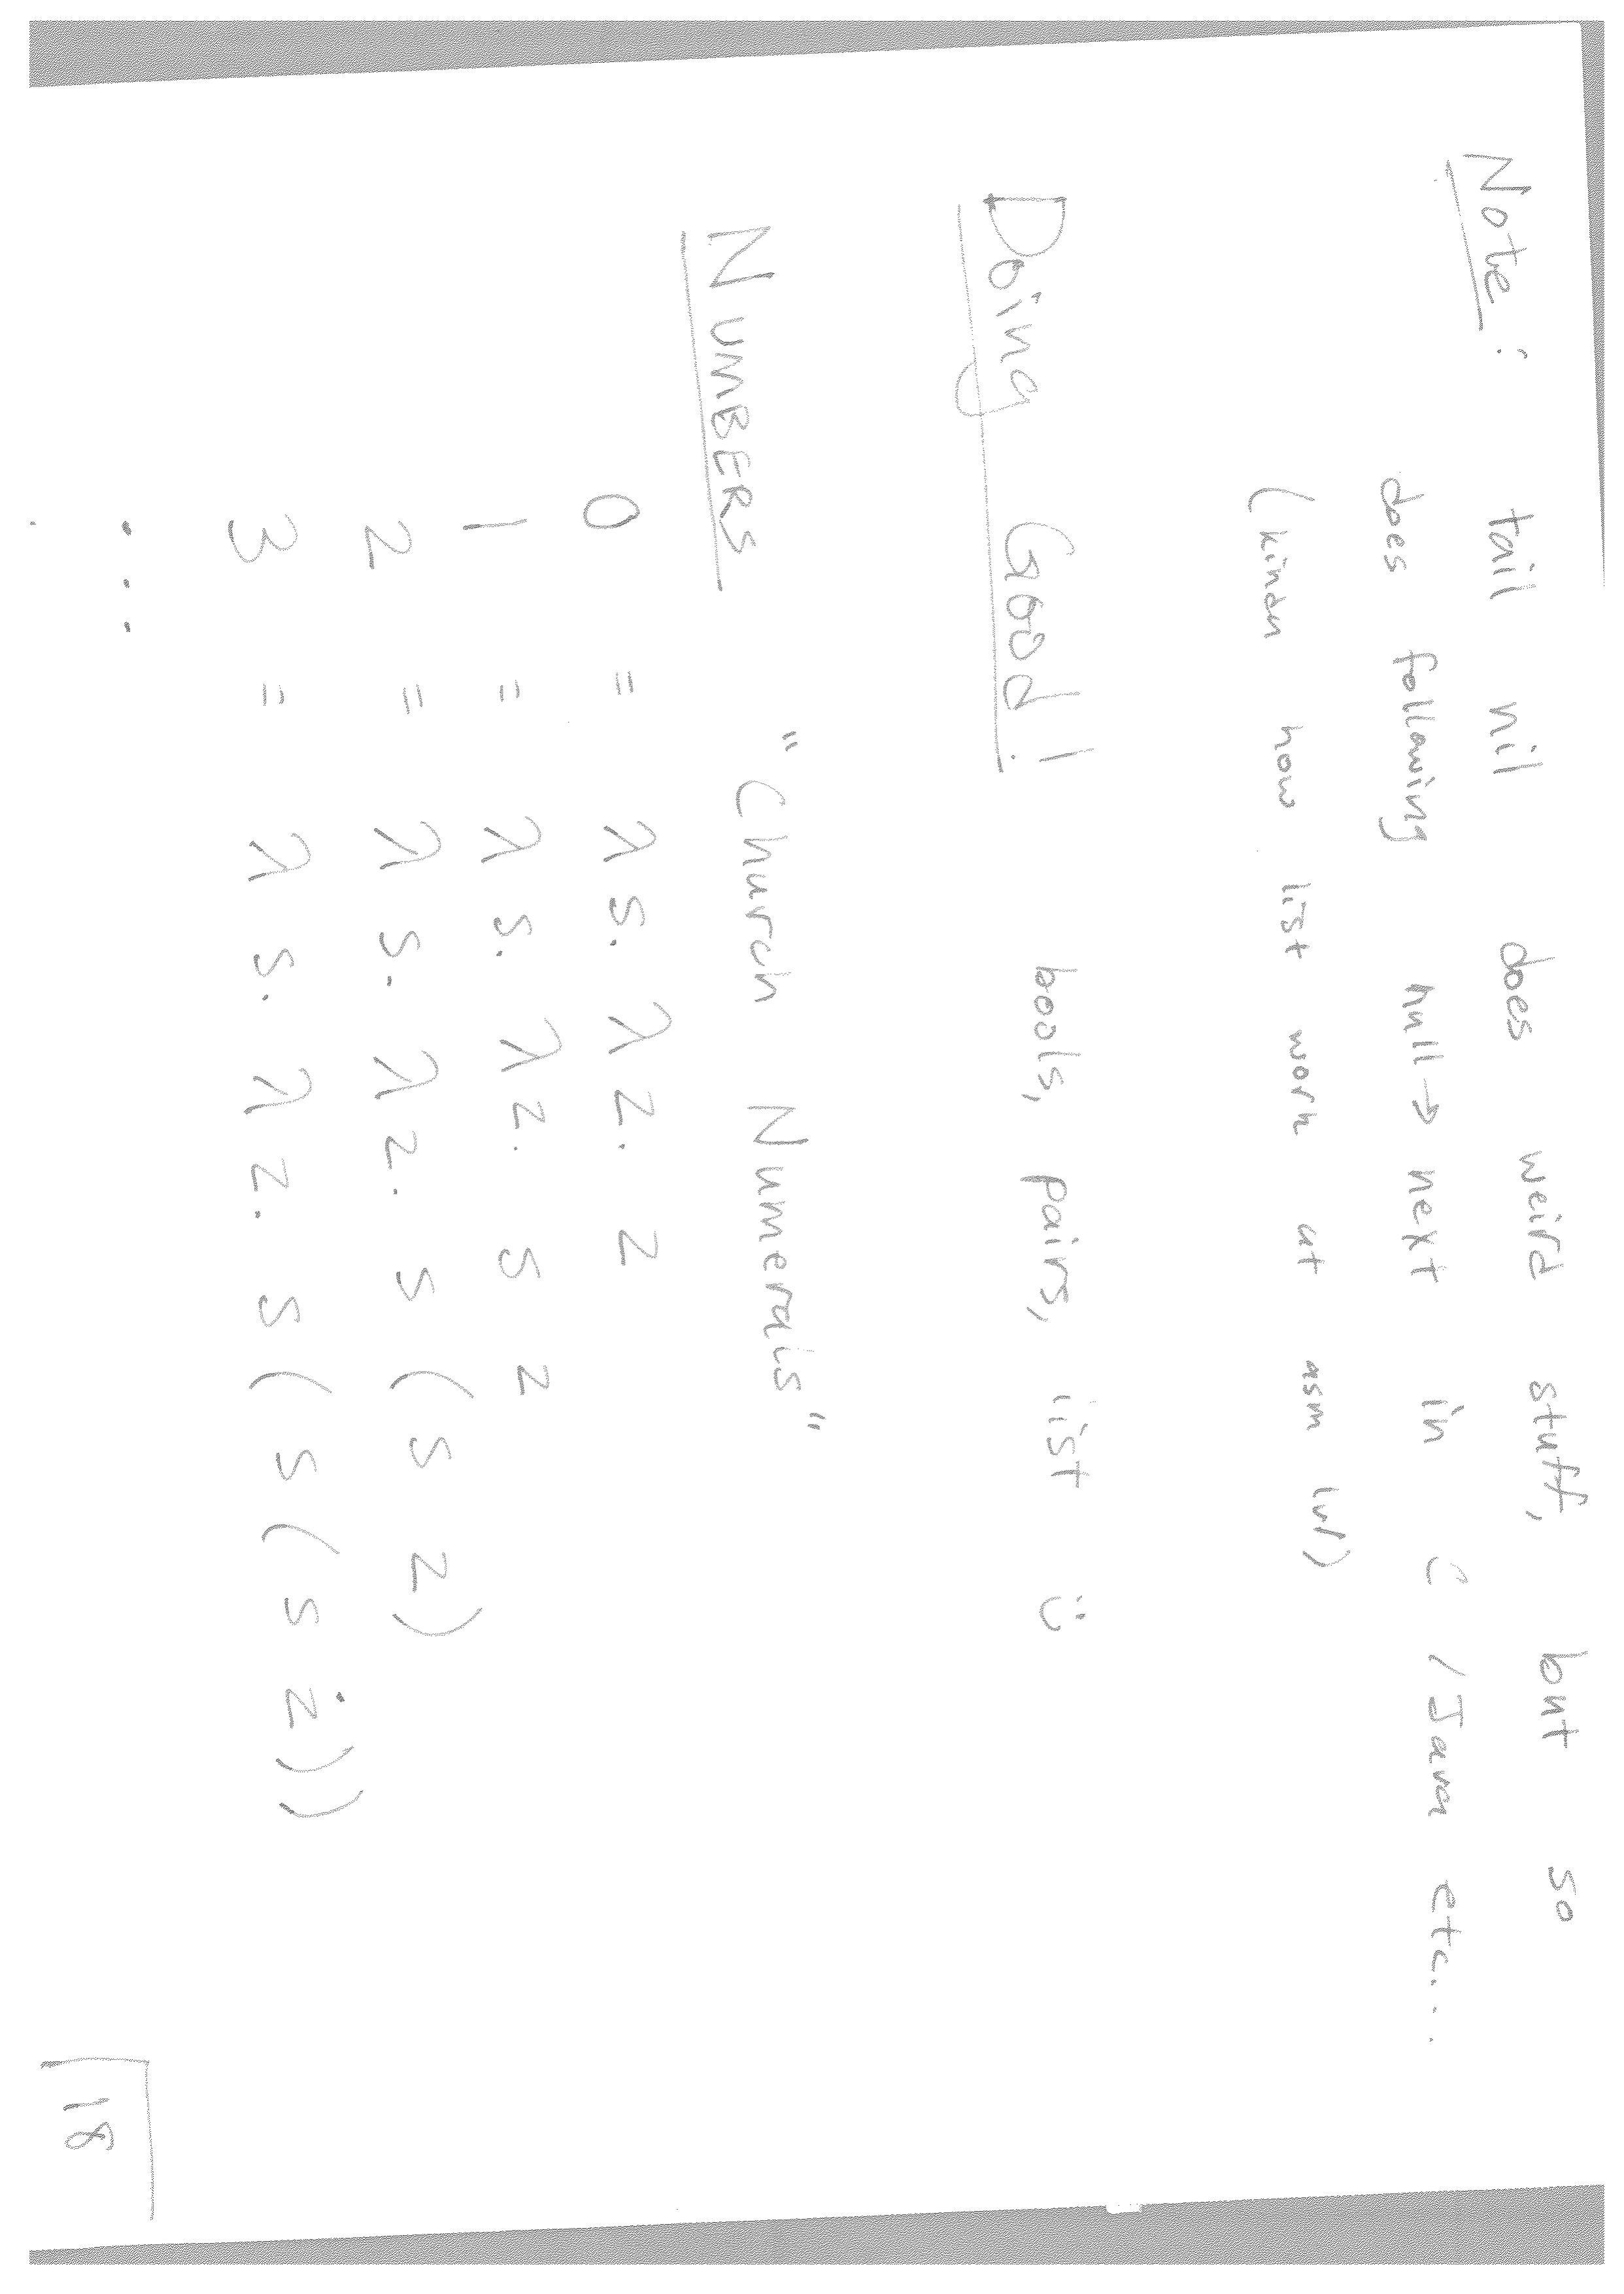 Note: tail nil does weird stuff, but so
does following null→next in C /Java etc...
(kinda how list work at asm lvl)
Doing Good! bools, pairs, list ü
NUMBERS "Church Numerals"
0 = λs. λz. z
1 = λs. λz. s z
2 = λs. λz. s (s z)
3 = λs. λz. s (s (s z))
...
18